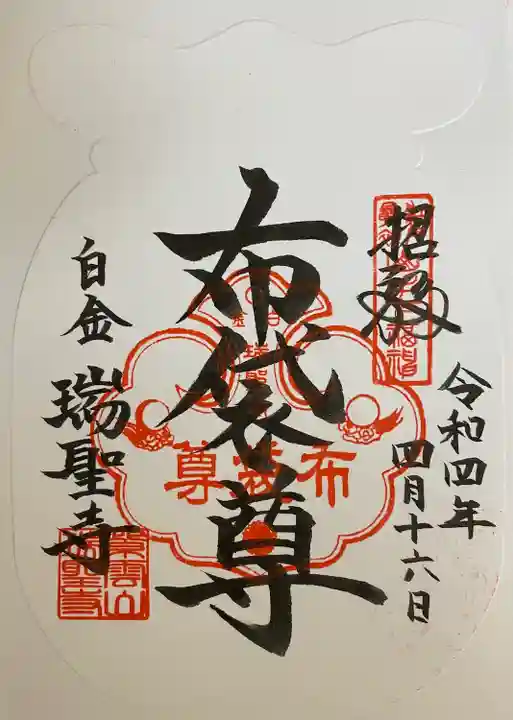 招
令和四年
四月十六日
布袋尊
白金 瑞聖寺
布袋尊
紫雲山
瑞聖寺